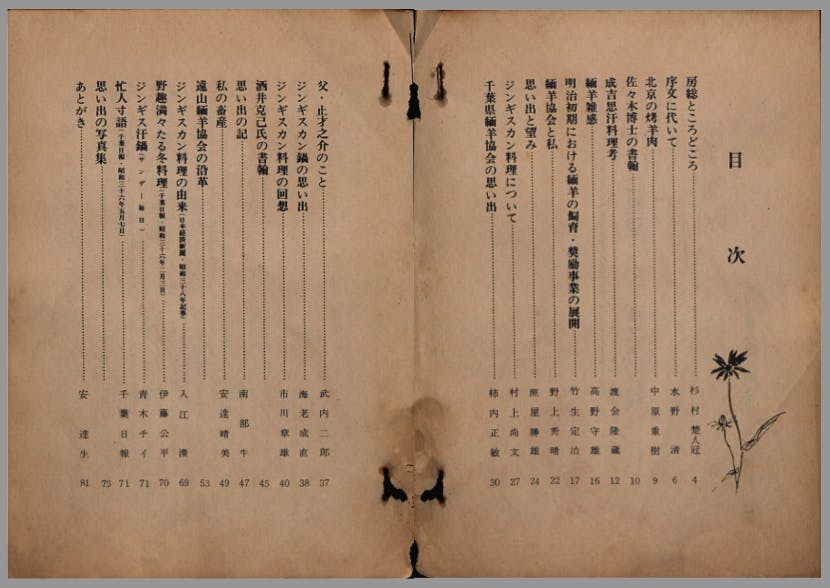 目次
房総ところどころ 杉村楚人冠 4
序文に代いて 水野清 6
北京の烤羊肉 中原重樹 9
佐々木博士の書翰 10
成吉思汗料理考 渡会隆蔵 12
緬羊雑感 高野守雄 16
明治初期における緬羊の飼育・奨励事業の展開 竹生定治 17
緬羊協会と私 野上秀晴 22
思い出と望み 照屋勝雄 24
ジンギスカン料理について 村上尚文 27
千葉県緬羊協会の思い出 柿内正敏 30
父・止才之介のこと 武内二郎 37
ジンギスカン鍋の思い出 海老成直 38
ジンギスカン料理の回想 市川章雄 40
酒井克己氏の書翰 45
思い出の記 南部牛 47
私の畜産 安達晴美 49
遠山緬羊協会の沿革 53
ジンギスカン料理の由来(日本経済新聞・昭和三十八年記事) 入江湊 69
野趣満々たる冬料理(千葉日報・昭和三十六年二月三日) 伊藤公平 70
ジンギス汗鍋(サンデー毎日) 青木チイ 71
忙人寸語(千葉日報・昭和三十六年五月七日) 千葉日報 71
思い出の写真集 73
あとがき 安達生 81